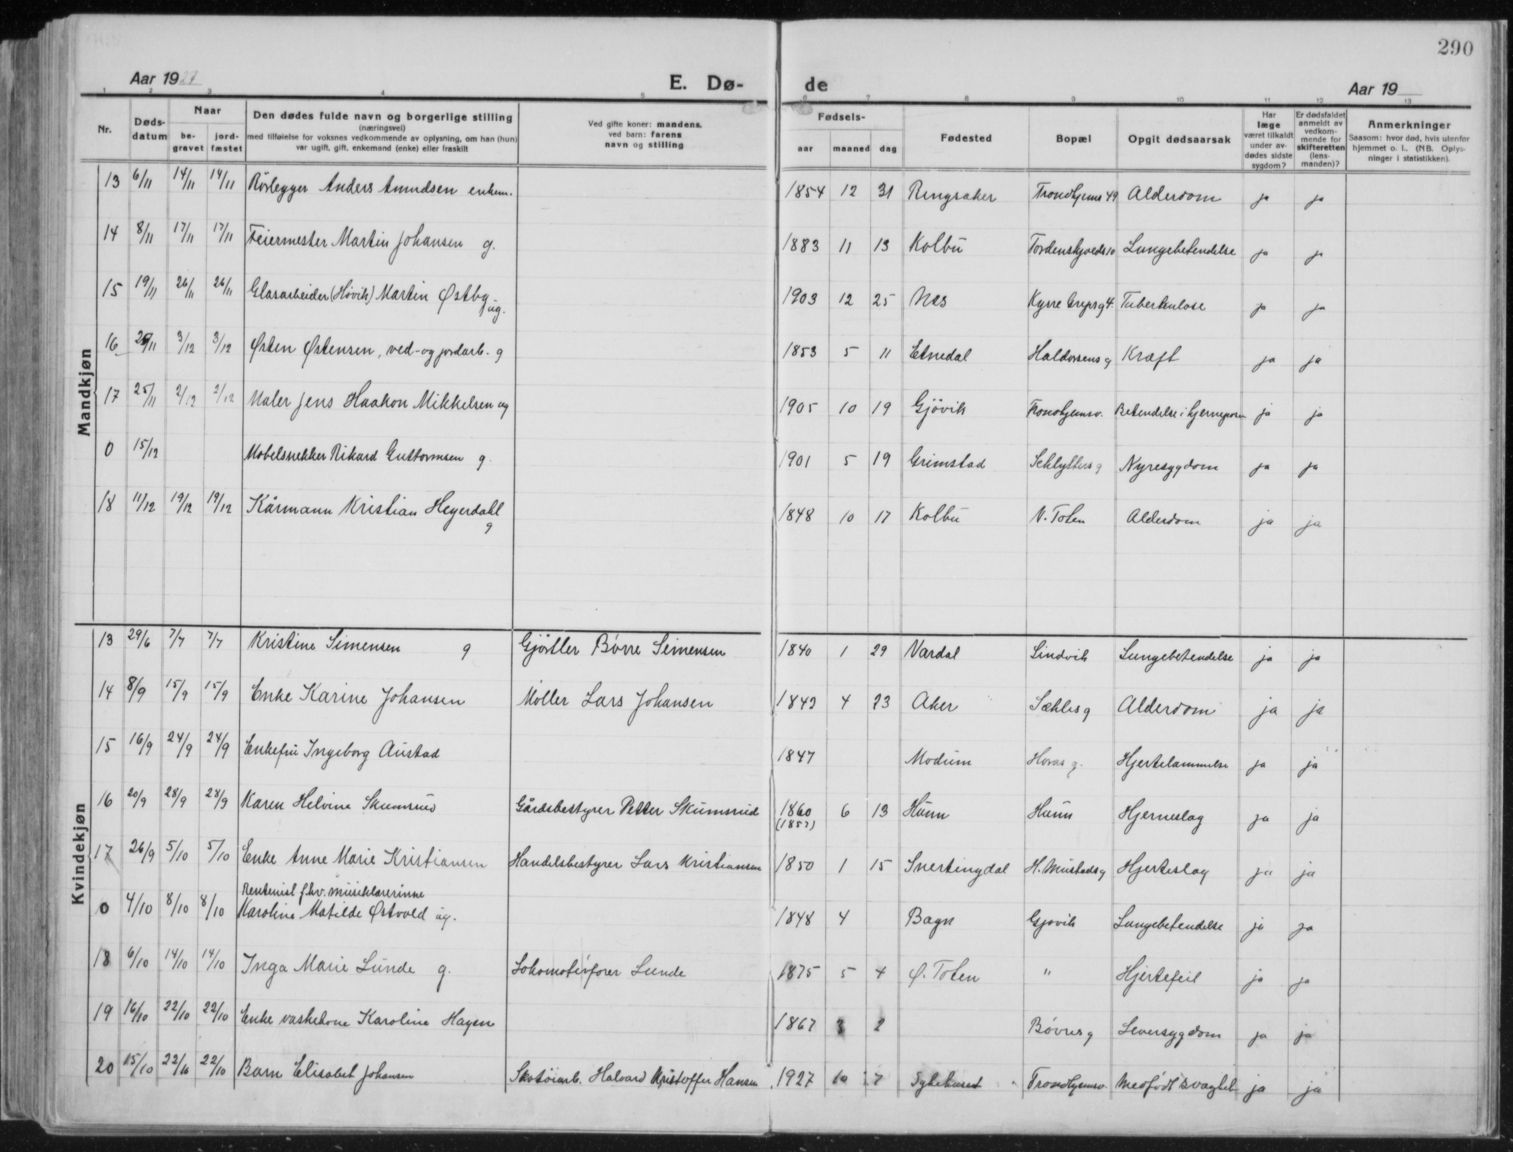 290
Aar 1927 E. Dø- de Aar 19
1 2 3 4 5 6 7 8 9 10 11 12 13
Nr. Døds-datum Naar be-gravet jord-fæstet Den dødes fulde navn og borgerlige stilling (næringsvei) med tilføielse for voksnes vedkommende av oplysning, om han (hun) var ugift, gift, enkemand (enke) eller fraskilt Ved gifte koner: mandens, ved barn: farens navn og stilling Fødsels- aar maaned dag Fødested Bopæl Opgit dødsaarsak Har læge været tilkaldt under av-dødes sidste sygdom? Er dødsfaldet anmeldt av vedkom-mende for skifteretten (lens-manden)? Anmerkninger Saasom: hvor død, hvis utenfor hjemmet o. l. (NB. Oplys-ninger i statistikken).
Mandkjøn
13 6/11 14/11 14/11 Rørlegger Anders Amundsen enkem. 1854 12 31 Ringsaker Trondhjems 49 Alderdom ja ja
14 8/11 17/11 17/11 Feiermester Martin Johansen g. 1883 11 13 Kolbu Tordenskjolds 10 Lungebetendelse ja ja
15 19/11 26/11 26/11 Glasarbeider (Høvik) Martin Østby ug. 1903 12 25 Nes Kyrre Grepsg 4. Tuberkulose ja ja
16 3/12 3/12 Østen Østensen, ved- og jordarb. g 1853 5 11 Etnedal Haldorsens g Kræft ja ja
17 25/11 2/12 2/12 Maler Jens Haakon Mikkelsen ug 1905 10 19 Gjøvik Trondhjemsv. Betendelse i hjerneporen ja ja
0 15/12 Møbelsnekker Rikard Gustormsen g. 1901 5 19 Grimstad Schlytters g Nyresygdom ja ja
18 11/12 19/12 19/12 Kårmann Kristian Heyerdahl g 1848 10 17 Kolbu V. Toten Alderdom ja ja
Kvindekjøn
13 29/6 7/7 7/7 Kristine Simensen g Gjørtler Børre Simensen 1840 1 29 Vardal Lindvik Lungebetendelse ja ja
14 8/9 15/9 15/9 Enke Karine Johansen Møller Lars Johansen 1842 4 23 Aker Sæhles g Alderdom ja ja
15 16/9 24/9 24/9 Enkefru Ingeborg Austad 1847 Modum Hovs g. Hjertelammelse ja ja
16 20/9 28/9 28/9 Karen Helvine Skumsrud Gårdsbestyrer Petter Skumsrud 1860 (1857) 6 13 Hunn Hunn Hjerneslag ja ja
17 26/9 5/10 5/10 Enke Anne Marie Kristiansen Handelsbestyrer Lars Kristiansen 1850 1 15 Snertingdal H. Mustads g Hjerteslag ja ja
Rentenist f.hv. musiklærerinne
0 4/10 8/10 8/10 Karoline Matilde Østvold ug. 1848 4 Bagn Gjøvik Lungebetendelse ja ja
18 6/10 14/10 14/10 Inga Marie Lunde g. Lokomotivfører Lunde 1875 5 4 Ø. Toten " Hjertefeil ja ja
19 16/10 22/10 22/10 Enke vaskekone Karoline Hagen 1867 3 2 Bøvres g Leversygdom ja ja
20 15/10 22/10 22/10 Barn Elisabet Johansen Skotøiarb. Halvard Kristoffer Hansen 1927 10 7 Sykehuset Trondhjemsv. Medfødt svaghet ja ja